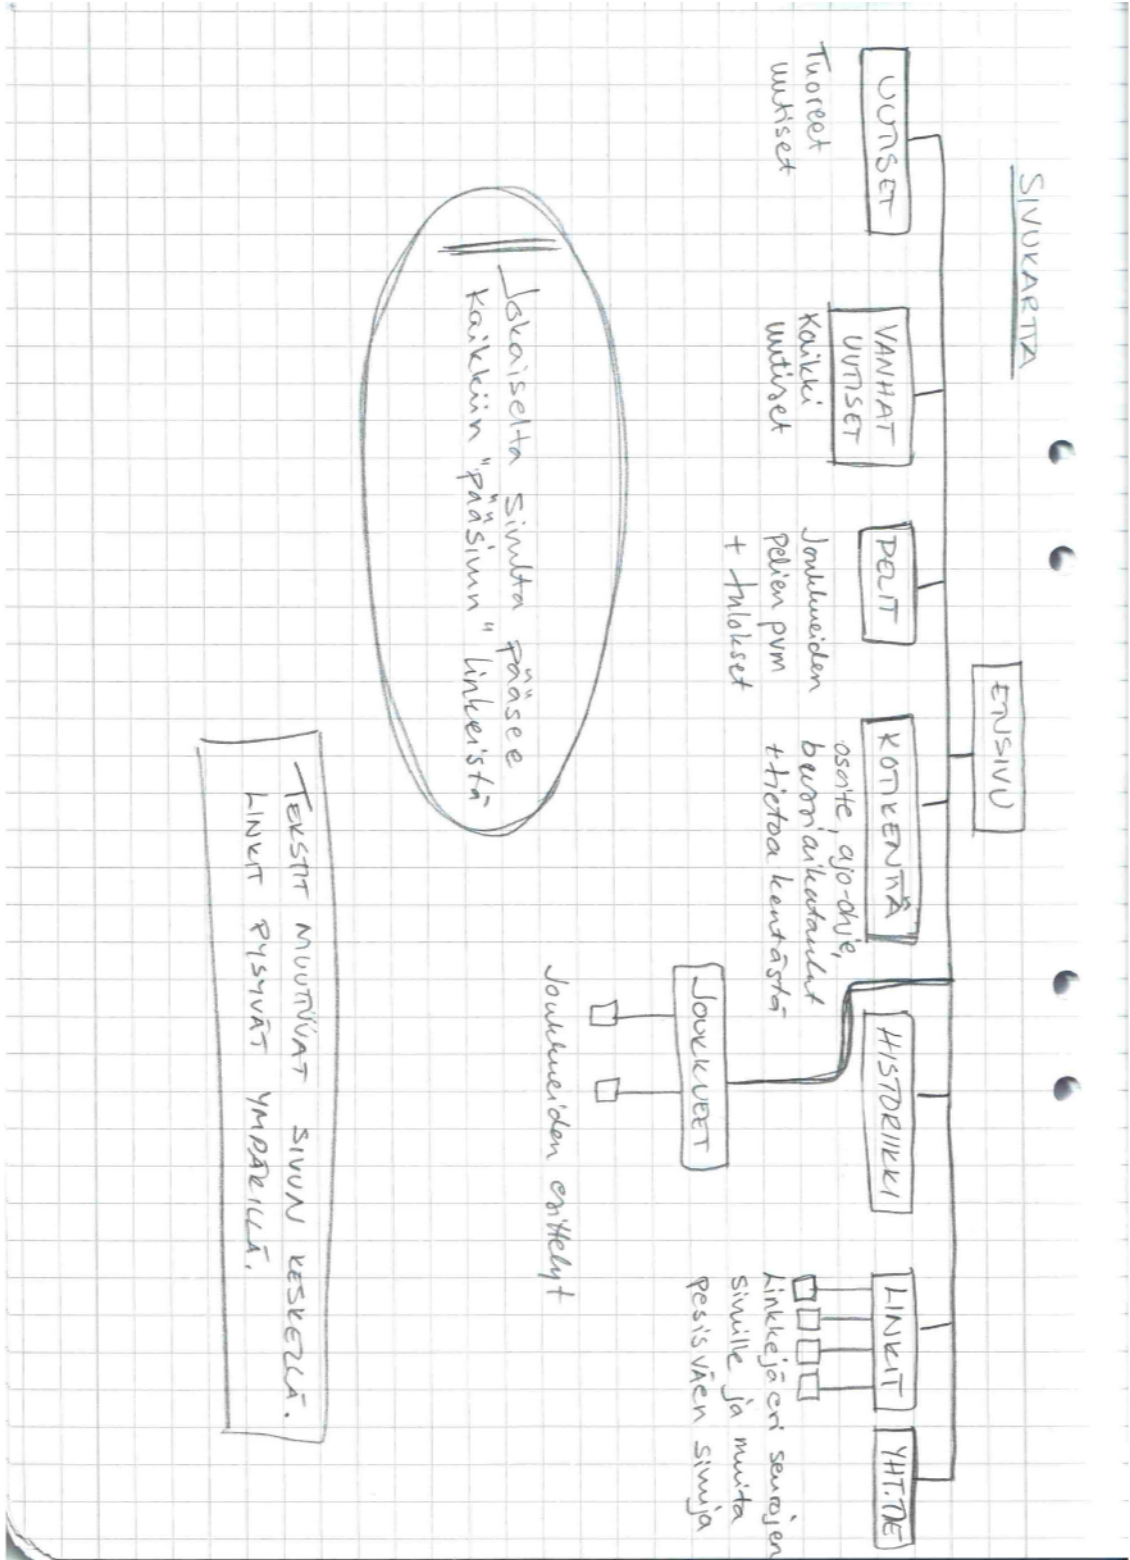 SIVUKARTTA
ETUSIVU
UUTISET
Tuoreet
uutiset
VANHAT
UUTISET
Kaikki
uutiset
PELIT
Joukkueiden
pelien pvm
+ tulokset
KOTIKENTTÄ
osoite, ajo-ohje,
bussiaikataulut
+ tietoa kentästä
HISTORIIKKI
LINKIT
Linkkejä eri seurojen
sivuille ja muita
pesisväen sivuja
YHT.TIE
JOUKKUEET
Joukkueiden esittelyt
Jokaiselta sivulta pääsee
kaikkiin "pääsivun" linkeistä
TEKSTIT MUUTTUVAT SIVUN KESKELLÄ.
LINKIT PYSYVÄT YMPÄRILLÄ.